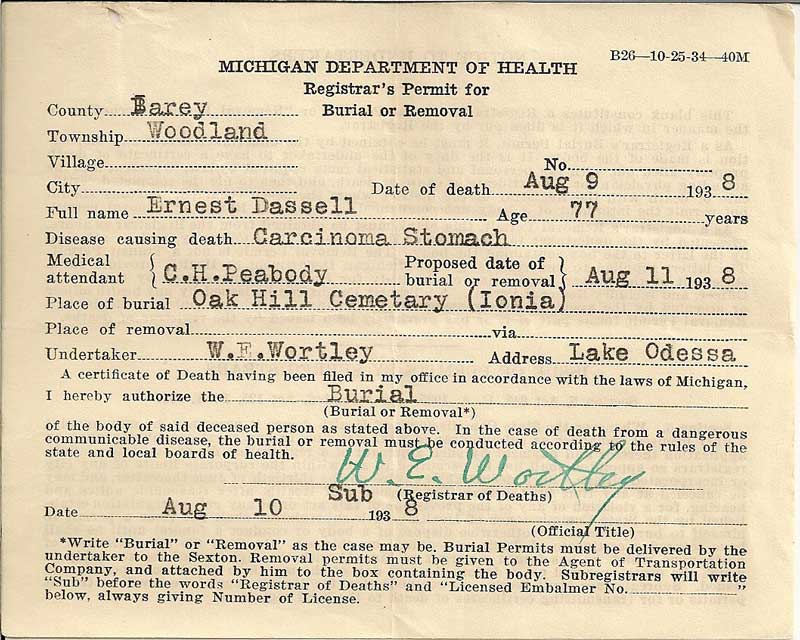 B26—10-25-34—40M
MICHIGAN DEPARTMENT OF HEALTH
Registrar's Permit for
Burial or Removal
County Barey
Township Woodland
Village
No.
City Date of death Aug 9 1938
Full name Ernest Dassell Age 77 years
Disease causing death Carcinoma Stomach
Medical attendant { C.H.Peabody Proposed date of burial or removal } Aug 11 1938
Place of burial Oak Hill Cemetary (Ionia)
Place of removal via
Undertaker W.E.Wortley Address Lake Odessa
A certificate of Death having been filed in my office in accordance with the laws of Michigan,
I hereby authorize the Burial
(Burial or Removal*)
of the body of said deceased person as stated above. In the case of death from a dangerous
communicable disease, the burial or removal must be conducted according to the rules of the
state and local boards of health.
W. E. Wortley
Sub (Registrar of Deaths)
Date Aug 10 1938
(Official Title)
*Write "Burial" or "Removal" as the case may be. Burial Permits must be delivered by the
undertaker to the Sexton. Removal permits must be given to the Agent of Transportation
Company, and attached by him to the box containing the body. Subregistrars will write
"Sub" before the words "Registrar of Deaths" and "Licensed Embalmer No. "
below, always giving Number of License.